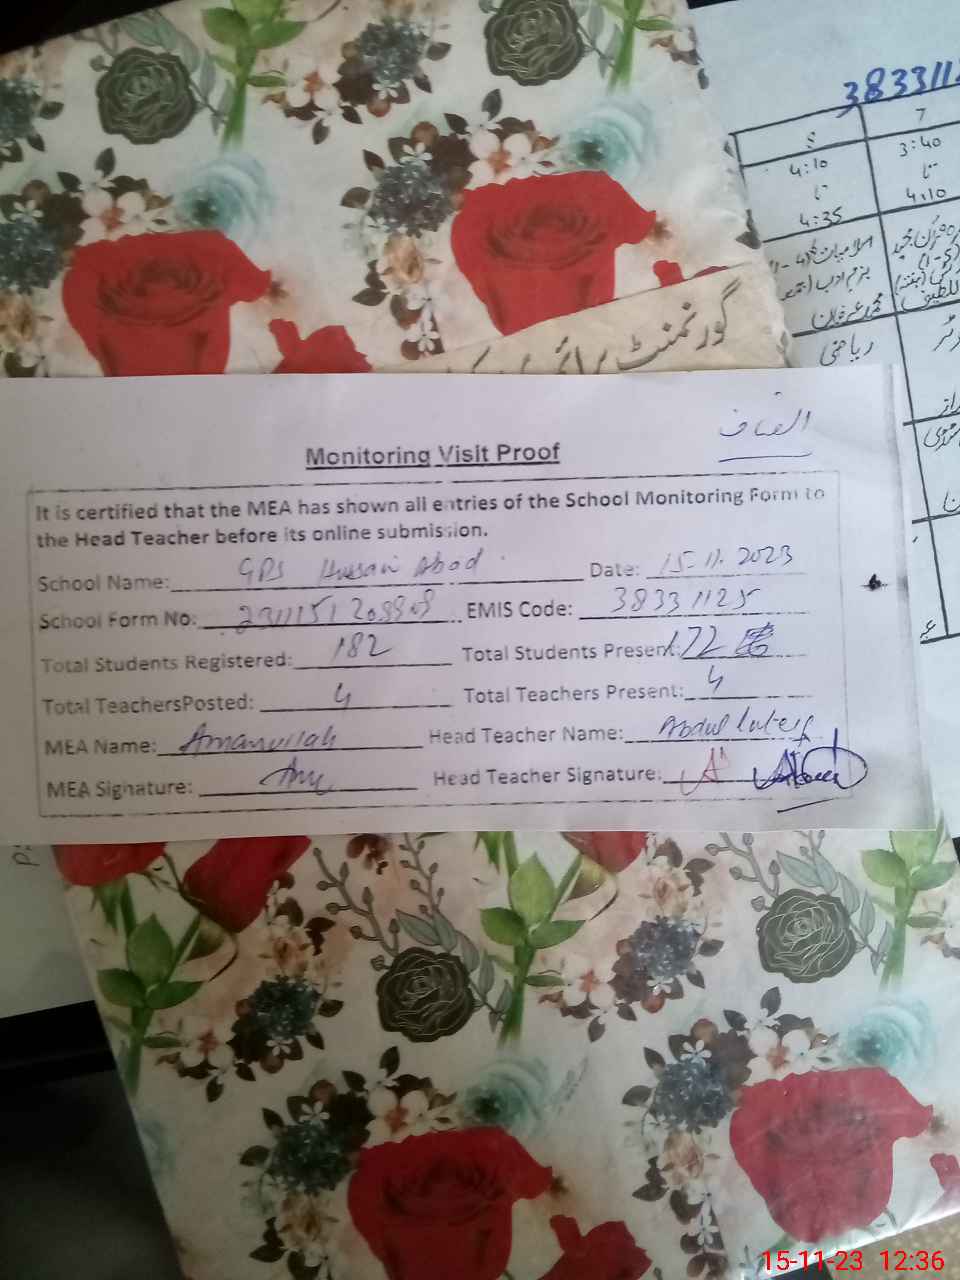 383311
8
7
4:10
تا
4:35
3:40
تا
4:10
ریاضی
گورنمنٹ پرائمری
Monitoring Visit Proof
It is certified that the MEA has shown all entries of the School Monitoring Form to
the Head Teacher before its online submission.
School Name: GPS Hussain Abad Date: 15.11.2023
School Form No: EMIS Code: 38331125
Total Students Registered: 182 Total Students Present: 172
Total TeachersPosted: 4 Total Teachers Present: 4
MEA Name: Amanullah Head Teacher Name: Abdul Lateef
MEA Signature: Head Teacher Signature:
15-11-23 12:36